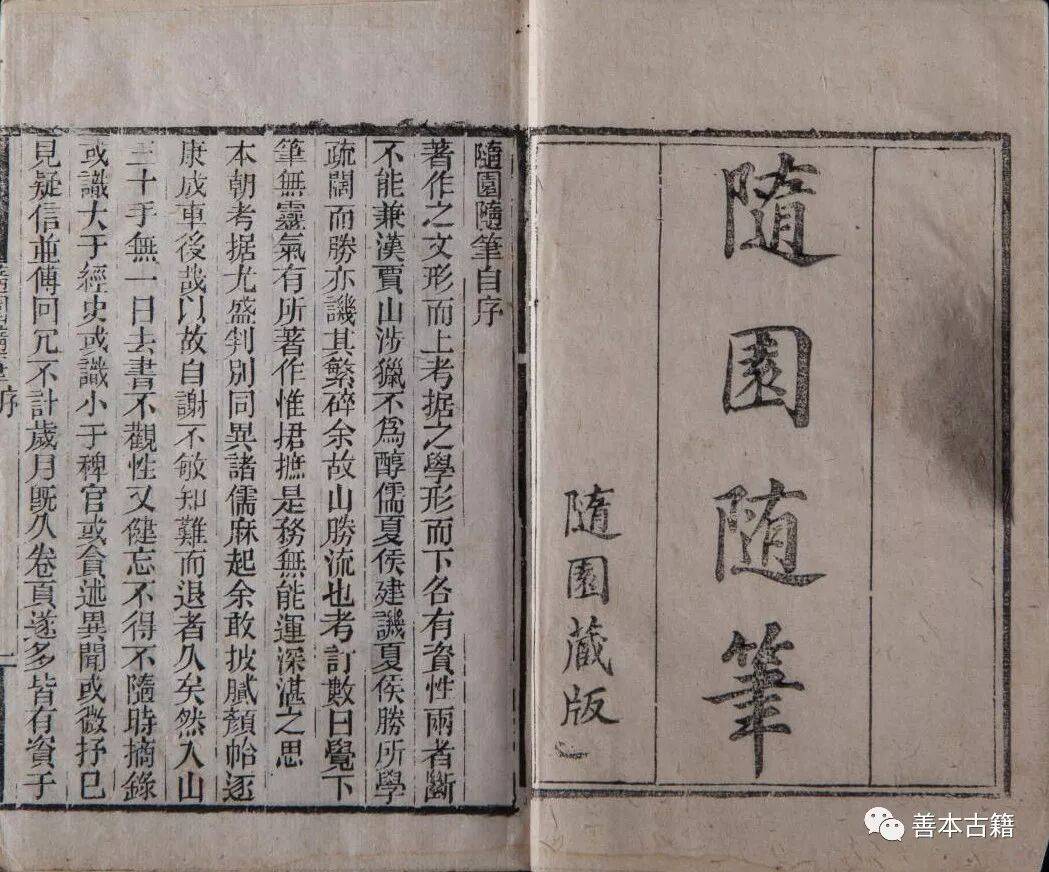 隨園隨筆
隨園藏版
隨園隨筆自序
著作之文形而上考据之學形而下各有資性兩者斷
不能兼漢賈山涉獵不爲醇儒夏侯建譏夏侯勝所學
疏闊而勝亦譏其繁碎余故山勝流也考訂數日覺下
筆無靈氣有所著作惟捃摭是務無能運深湛之思
本朝考据尤盛判別同異諸儒麻起余敢披膩顏帢逐
康成車後哉以故自謝不敏知難而退者久矣然入山
三十年無一日去書不觀性又健忘不得不隨時摘錄
或識大于經史或識小于稗官或貪述異聞或微抒已
見疑信並傳回冗不計歲月既久卷頁遂多皆有資于
序
善本古籍